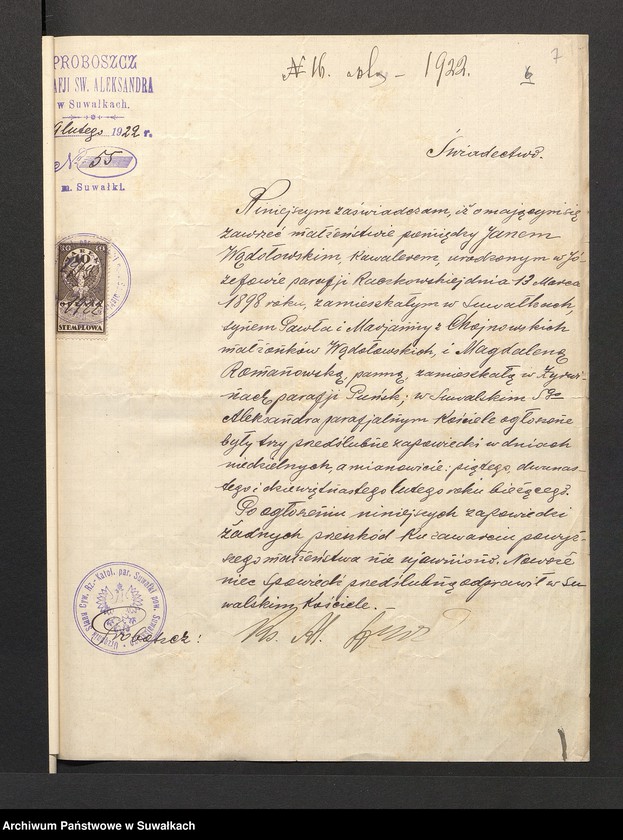 PROBOSZCZ
AFJI ŚW. ALEKSANDRA
w Suwałkach.
lutego 1922 r.
№ 55
m. Suwałki.
№ 16. 1922.
7
6
Świadectwo.
Niniejszym zaświadczam, iż o mającym się
zawrzeć małżeństwie pomiędzy Janem
Wądołowskim, kawalerem, urodzonym w Jó-
zefowie parafji Raczkowskiej dnia 13 Marca
1898 roku, zamieszkałym w Suwałkach,
synem Pawła i Marjanny z Chojnowskich
małżonków Wądołowskich, i Magdaleną
Romanowską, panną, zamieszkałą w
nach parafji Puńsk; w Suwalskim Śgo
Aleksandra parafjalnym Kościele ogłoszone
były trzy przedślubne zapowiedzi w dniach
niedzielnych, a mianowicie: piątego, dwunas-
tego i dziewiętnastego lutego roku bieżącego.
Po ogłoszeniu niniejszych zapowiedzi
żadnych przeszkód ku zawarciu powyż-
szego małżeństwa nie ujawniono. Nowoże
niec spowiedź przedślubną odprawił w Su-
walskim Kościele.
Proboszcz: Ks. Al.
STEMPLOWA
Stanu Cyw. Rz.-Katol. par. Suwałki pow. Suwalskiego
Archiwum Państwowe w Suwałkach